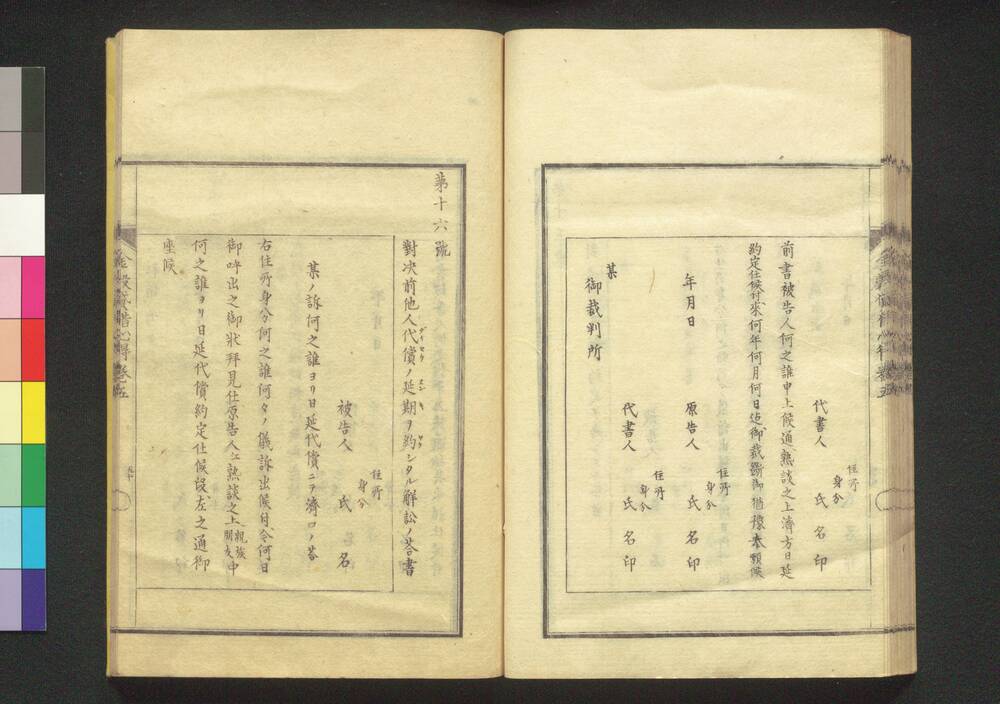 住所
身分
代書人 氏名印
前書被告人何之誰申上候通熟談之上濟方日延
約定仕候付來何年何月何日迄御裁斷御猶豫奉願候
住所
身分
年月日 原告人 氏名印
住所
身分
代書人 氏名印
某
御裁判所
第十六號
對决前他人代償ノ延期ヲ約シタル解訟ノ答書
某ノ訴何之誰ヨリ日延代償ニテ濟口ノ答
住所
身分
被告人 氏名
右住所身分何之誰何々ノ儀訴出候付今何日
御呼出之御狀拜見仕原告人エ熟談之上親族朋友中
何之誰ヨリ日延代償約定仕候段左之通御
座候